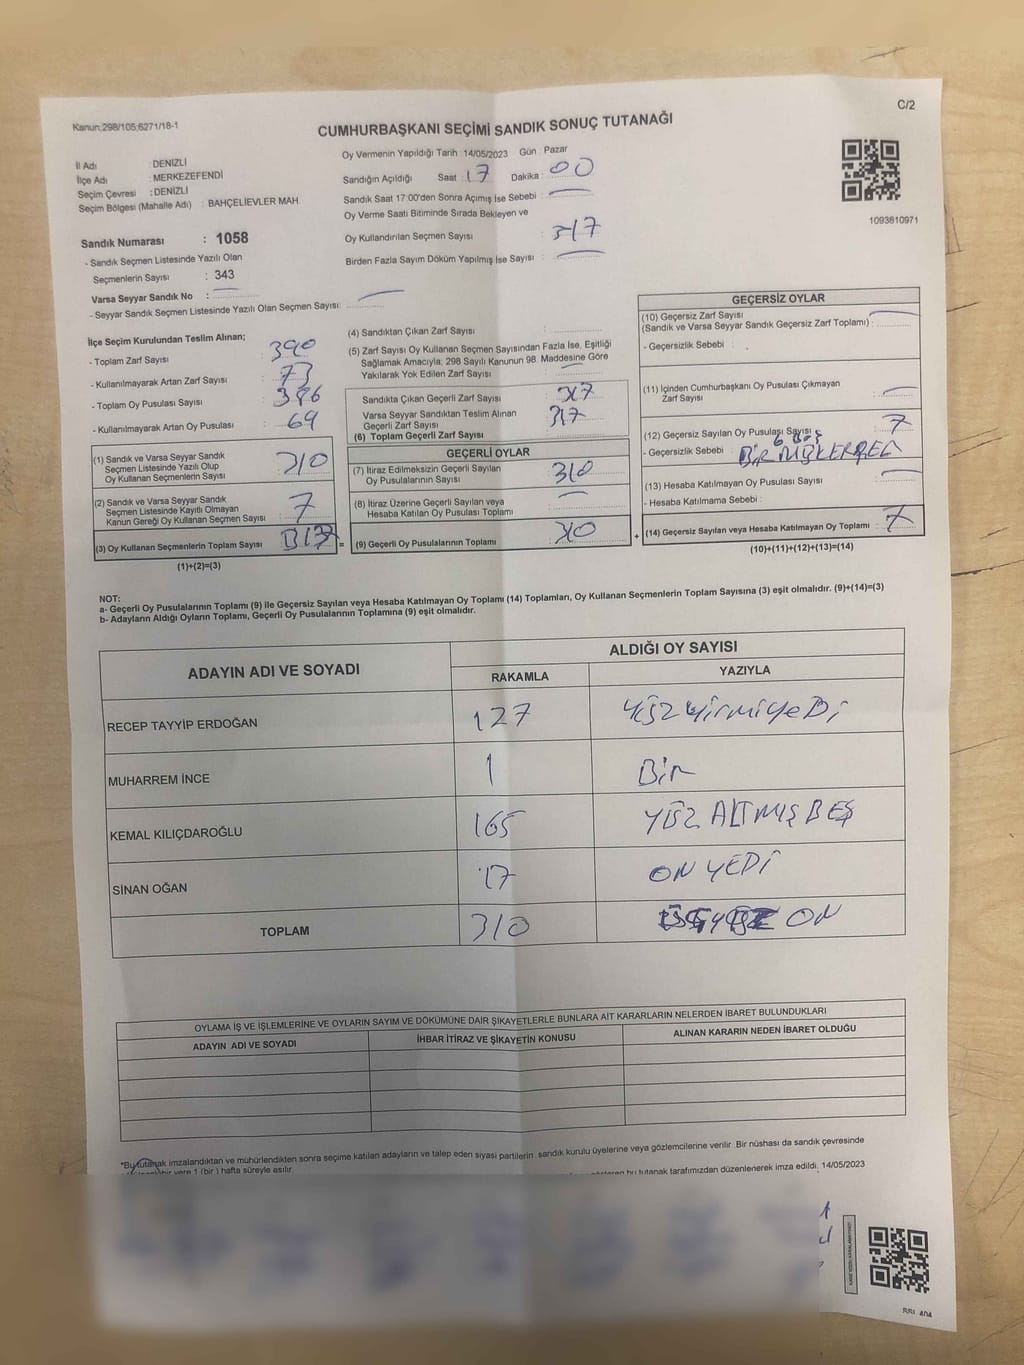 Kanun:298/105;6271/18-1
C/2
CUMHURBAŞKANI SEÇİMİ SANDIK SONUÇ TUTANAĞI
İl Adı : DENİZLİ
İlçe Adı : MERKEZEFENDİ
Seçim Çevresi : DENİZLİ
Seçim Bölgesi (Mahalle Adı) : BAHÇELİEVLER MAH.
Oy Vermenin Yapıldığı Tarih : 14/05/2023 Gün : Pazar
Sandığın Açıldığı Saat : 17 Dakika : 00
Sandık Saat 17:00'den Sonra Açmış İse Sebebi :
Oy Verme Saati Bitiminde Sırada Bekleyen ve
Oy Kullandırılan Seçmen Sayısı : 317
Birden Fazla Sayım Döküm Yapılmış İse Sayısı :
1093810971
Sandık Numarası : 1058
- Sandık Seçmen Listesinde Yazılı Olan
Seçmenlerin Sayısı : 343
Varsa Seyyar Sandık No :
- Seyyar Sandık Seçmen Listesinde Yazılı Olan Seçmen Sayısı:
İlçe Seçim Kurulundan Teslim Alınan;
- Toplam Zarf Sayısı : 390
- Kullanılmayarak Artan Zarf Sayısı : 73
- Toplam Oy Pusulası Sayısı : 386
- Kullanılmayarak Artan Oy Pusulası : 69
(1) Sandık ve Varsa Seyyar Sandık
Seçmen Listesinde Yazılı Olup
Oy Kullanan Seçmenlerin Sayısı : 310
(2) Sandık ve Varsa Seyyar Sandık
Seçmen Listesinde Kayıtlı Olmayan
Kanun Gereği Oy Kullanan Seçmen Sayısı : 7
(3) Oy Kullanan Seçmenlerin Toplam Sayısı : 317 =
(1)+(2)=(3)
(4) Sandıktan Çıkan Zarf Sayısı :
(5) Zarf Sayısı Oy Kullanan Seçmen Sayısından Fazla İse, Eşitliği
Sağlamak Amacıyla; 298 Sayılı Kanunun 98. Maddesine Göre
Yakılarak Yok Edilen Zarf Sayısı :
Sandıkta Çıkan Geçerli Zarf Sayısı : 317
Varsa Seyyar Sandıktan Teslim Alınan
Geçerli Zarf Sayısı : 317
(6) Toplam Geçerli Zarf Sayısı :
GEÇERLİ OYLAR
(7) İtiraz Edilmeksizin Geçerli Sayılan
Oy Pusulalarının Sayısı : 310
(8) İtiraz Üzerine Geçerli Sayılan veya
Hesaba Katılan Oy Pusulası Toplamı :
(9) Geçerli Oy Pusulalarının Toplamı : 310 +
GEÇERSİZ OYLAR
(10) Geçersiz Zarf Sayısı
(Sandık ve Varsa Seyyar Sandık Geçersiz Zarf Toplamı) :
- Geçersizlik Sebebi :
(11) İçinden Cumhurbaşkanı Oy Pusulası Çıkmayan
Zarf Sayısı :
(12) Geçersiz Sayılan Oy Pusulası Sayısı : 7
6 Boş
- Geçersizlik Sebebi : BİR
(13) Hesaba Katılmayan Oy Pusulası Sayısı :
- Hesaba Katılmama Sebebi :
(14) Geçersiz Sayılan veya Hesaba Katılmayan Oy Toplamı : 7
(10)+(11)+(12)+(13)=(14)
NOT:
a- Geçerli Oy Pusulalarının Toplamı (9) ile Geçersiz Sayılan veya Hesaba Katılmayan Oy Toplamı (14) Toplamları, Oy Kullanan Seçmenlerin Toplam Sayısına (3) eşit olmalıdır. (9)+(14)=(3)
b- Adayların Aldığı Oyların Toplamı, Geçerli Oy Pusulalarının Toplamına (9) eşit olmalıdır.
ADAYIN ADI VE SOYADI
ALDIĞI OY SAYISI
RAKAMLA YAZIYLA
RECEP TAYYİP ERDOĞAN 127 YÜZ YİRMİ YEDİ
MUHARREM İNCE 1 BİR
KEMAL KILIÇDAROĞLU 165 YÜZ ALTMIŞ BEŞ
SİNAN OĞAN 17 ON YEDİ
TOPLAM 310 ÜÇ YÜZ ON
OYLAMA İŞ VE İŞLEMLERİNE VE OYLARIN SAYIM VE DÖKÜMÜNE DAİR ŞİKAYETLERLE BUNLARA AİT KARARLARIN NELERDEN İBARET BULUNDUKLARI
ADAYIN ADI VE SOYADI İHBAR İTİRAZ VE ŞİKAYETİN KONUSU ALINAN KARARIN NEDEN İBARET OLDUĞU
*Bu tutanak imzalandıktan ve mühürlendikten sonra seçime katılan adayların ve talep eden siyasi partilerin sandık kurulu üyelerine veya gözlemcilerine verilir. Bir nüshası da sandık çevresinde
bir yere 1 (bir) hafta süreyle asılır.
bu tutanak tarafımızdan düzenlenerek imza edildi. 14/05/2023